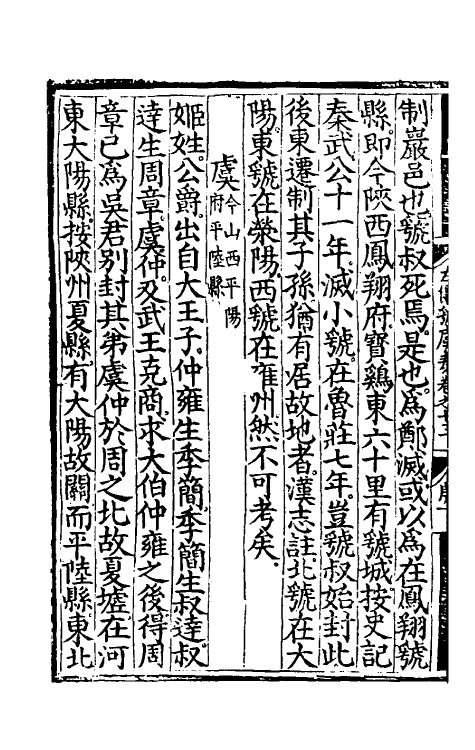 制巖邑也虢叔死焉是也為鄭滅或以為在鳳翔虢
縣即今陜西鳳翔府寶鷄東六十里有虢城按史記
秦武公十一年滅小虢在魯莊七年豈虢叔始封此
後東遷制其子孫猶有居故地者漢志註北虢在大
陽東虢在滎陽西虢在雍州然不可考矣
虞今山西平陽府平陸縣
姬姓公爵出自大王子仲雍生季簡季簡生叔逹叔
逹生周章虞仲及武王克商求大伯仲雍之後得周
章已為吳君別封其弟虞仲於周之北故夏墟在河
東大陽縣按陜州夏縣有大陽故關而平陸縣東北